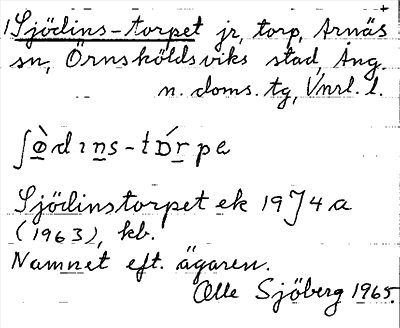 Sjödins-torpet jr, torp, Arnäs
sn, Örnsköldsviks stad, Ång.
n. doms. tg, Vnrl. l.
ʃö̀dıns-tɒ́rpe
Sjödinstorpet ek 19J4a
(1963), kb.
Namnet eft. ägaren.
Olle Sjöberg 1965.